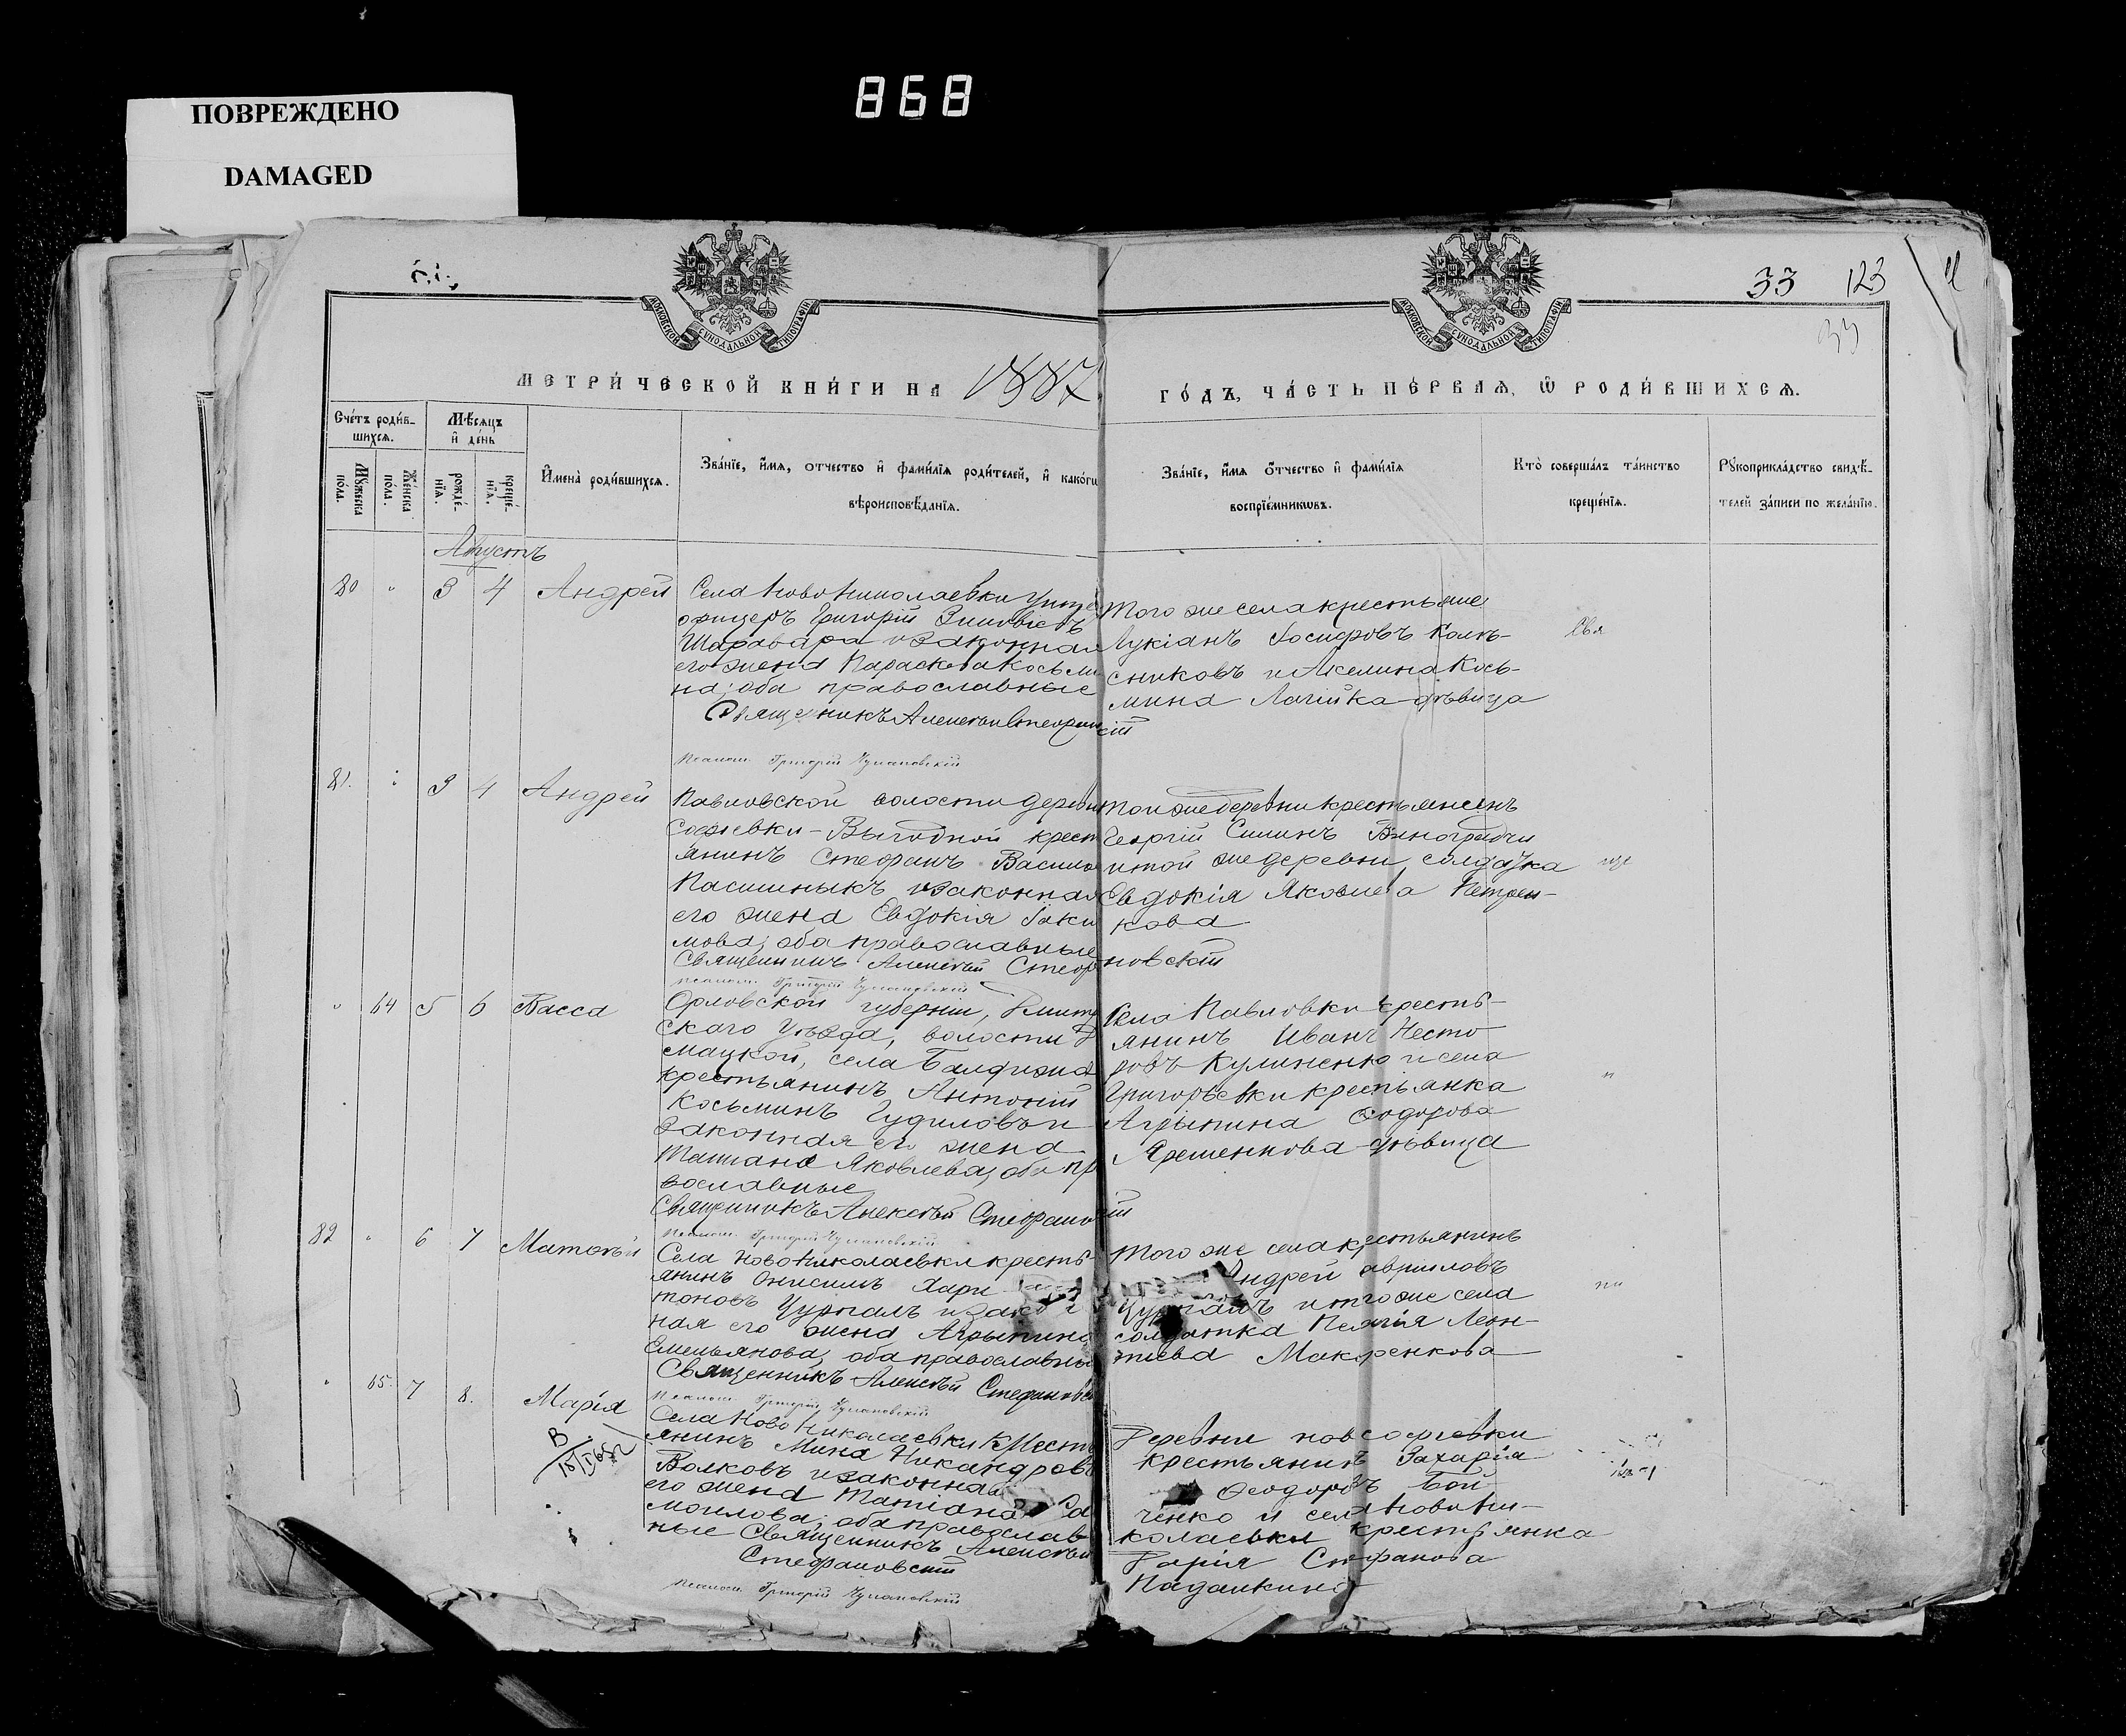 ПОВРЕЖДЕНО
DAMAGED
868
33 123
33
МОСКОВСКОЙ СѴНОДАЛЬНОЙ ТИПОГРАФІИ
МОСКОВСКОЙ СѴНОДАЛЬНОЙ ТИПОГРАФІИ
МЕТРИ́ЧЕСКОЙ КНИ́ГИ НА 1887 ГО́ДЪ, ЧА́СТЬ ПЕ́РВАѦ, Ѡ РОДИ́ВШИХСѦ.
Сче́тъ роди́в-
шихсѧ.
Мꙋжеска по́ла.
Же́нска по́ла.
Мѣ́сяцъ
и҆ де́нь
рожде́-
нїѧ.
креще́-
нїѧ.
И҆мена̀ роди́вшихсѧ.
Зва́нїе, и҆́мѧ, ѻтчество и҆ фами́лїѧ роди́телей, и҆ како́гѡ
вѣроисповѣ́данїѧ.
Зва́нїе, и҆́мѧ ѻтчество и҆ фами́лїѧ
воспрїе́мникѡвъ.
Кто̀ соверша́лъ та́инство
креще́нїѧ.
Рꙋкоприкла́дство свидѣ́-
телей за́писи по жела́нїю.
Августъ
80 " 3 4 Андрей
Села Ново Николаевки Унте
офицеръ Григорій Зиновіевъ
Шаравара и законная
его жена Параскева Косьми
на; оба православные
Священникъ Алексѣй Стефанов
скій
Псалом. Григорій
Того же села крестьяне
Лукіанъ Іосифовъ Колѣ-
сниковъ и Акелина Кось-
мина Лагійка дѣвица
81. 3 4 Андрей
Павловской волости дерев
Софіевки-Выгодной крест
янинъ Стефанъ Василь
Пасишныкъ и законная
его жена Евдокія Іаки
мова; оба православные
Священникъ Алексѣй Стефа
новскій
Псалом. Григорій
Той же деревни крестьянинъ
Георгій Симинъ
и той же деревни солдатка
Евдокія Яковлева Петрен-
кова
" 64 5 6 Васса
Орловской губерніи, Дмитр
скаго Уѣзда, волости
села
крестьянинъ Антоній
Косьминъ Гудиловъ и
законная его жена
Татіана Яковлева; оба пр
вославные
Священникъ Алексѣй Стефанов
скій
Псалом. Григорій
Села Павловки кресть-
янинъ Иванъ Несто
ровъ Кулиненко и села
Григорьевки крестьянка
Агрыпина Ѳеодорова
Яременкова дѣвица
82 " 6 7 Матѳѣй
Села НовоНиколаевки кресть
янинъ Онисимъ Хари
тоновъ и зако
ная его жена Агрыпина
Емельянова, оба православны
Священникъ Алексѣй Стефановс
Псалом. Григорій
Того же села крестьянинъ
Андрей Гавриловъ
и того же села
солдатка Пелагія Леон-
тіева Макаренкова
" 65. 7 8. Марія
Села Ново Николаевки Крест
янинъ Мина Никандровъ
Волковъ и законная
его жена Татіана Са
моилова; оба православ
ные Священникъ Алексѣй
Стефановскій
Псалом. Григорій
Деревни Новософіевки
крестьянинъ Захарія
Ѳеодоровъ Бой
ченко и села Новони-
колаевки крестьянка
Дарія Стефанова